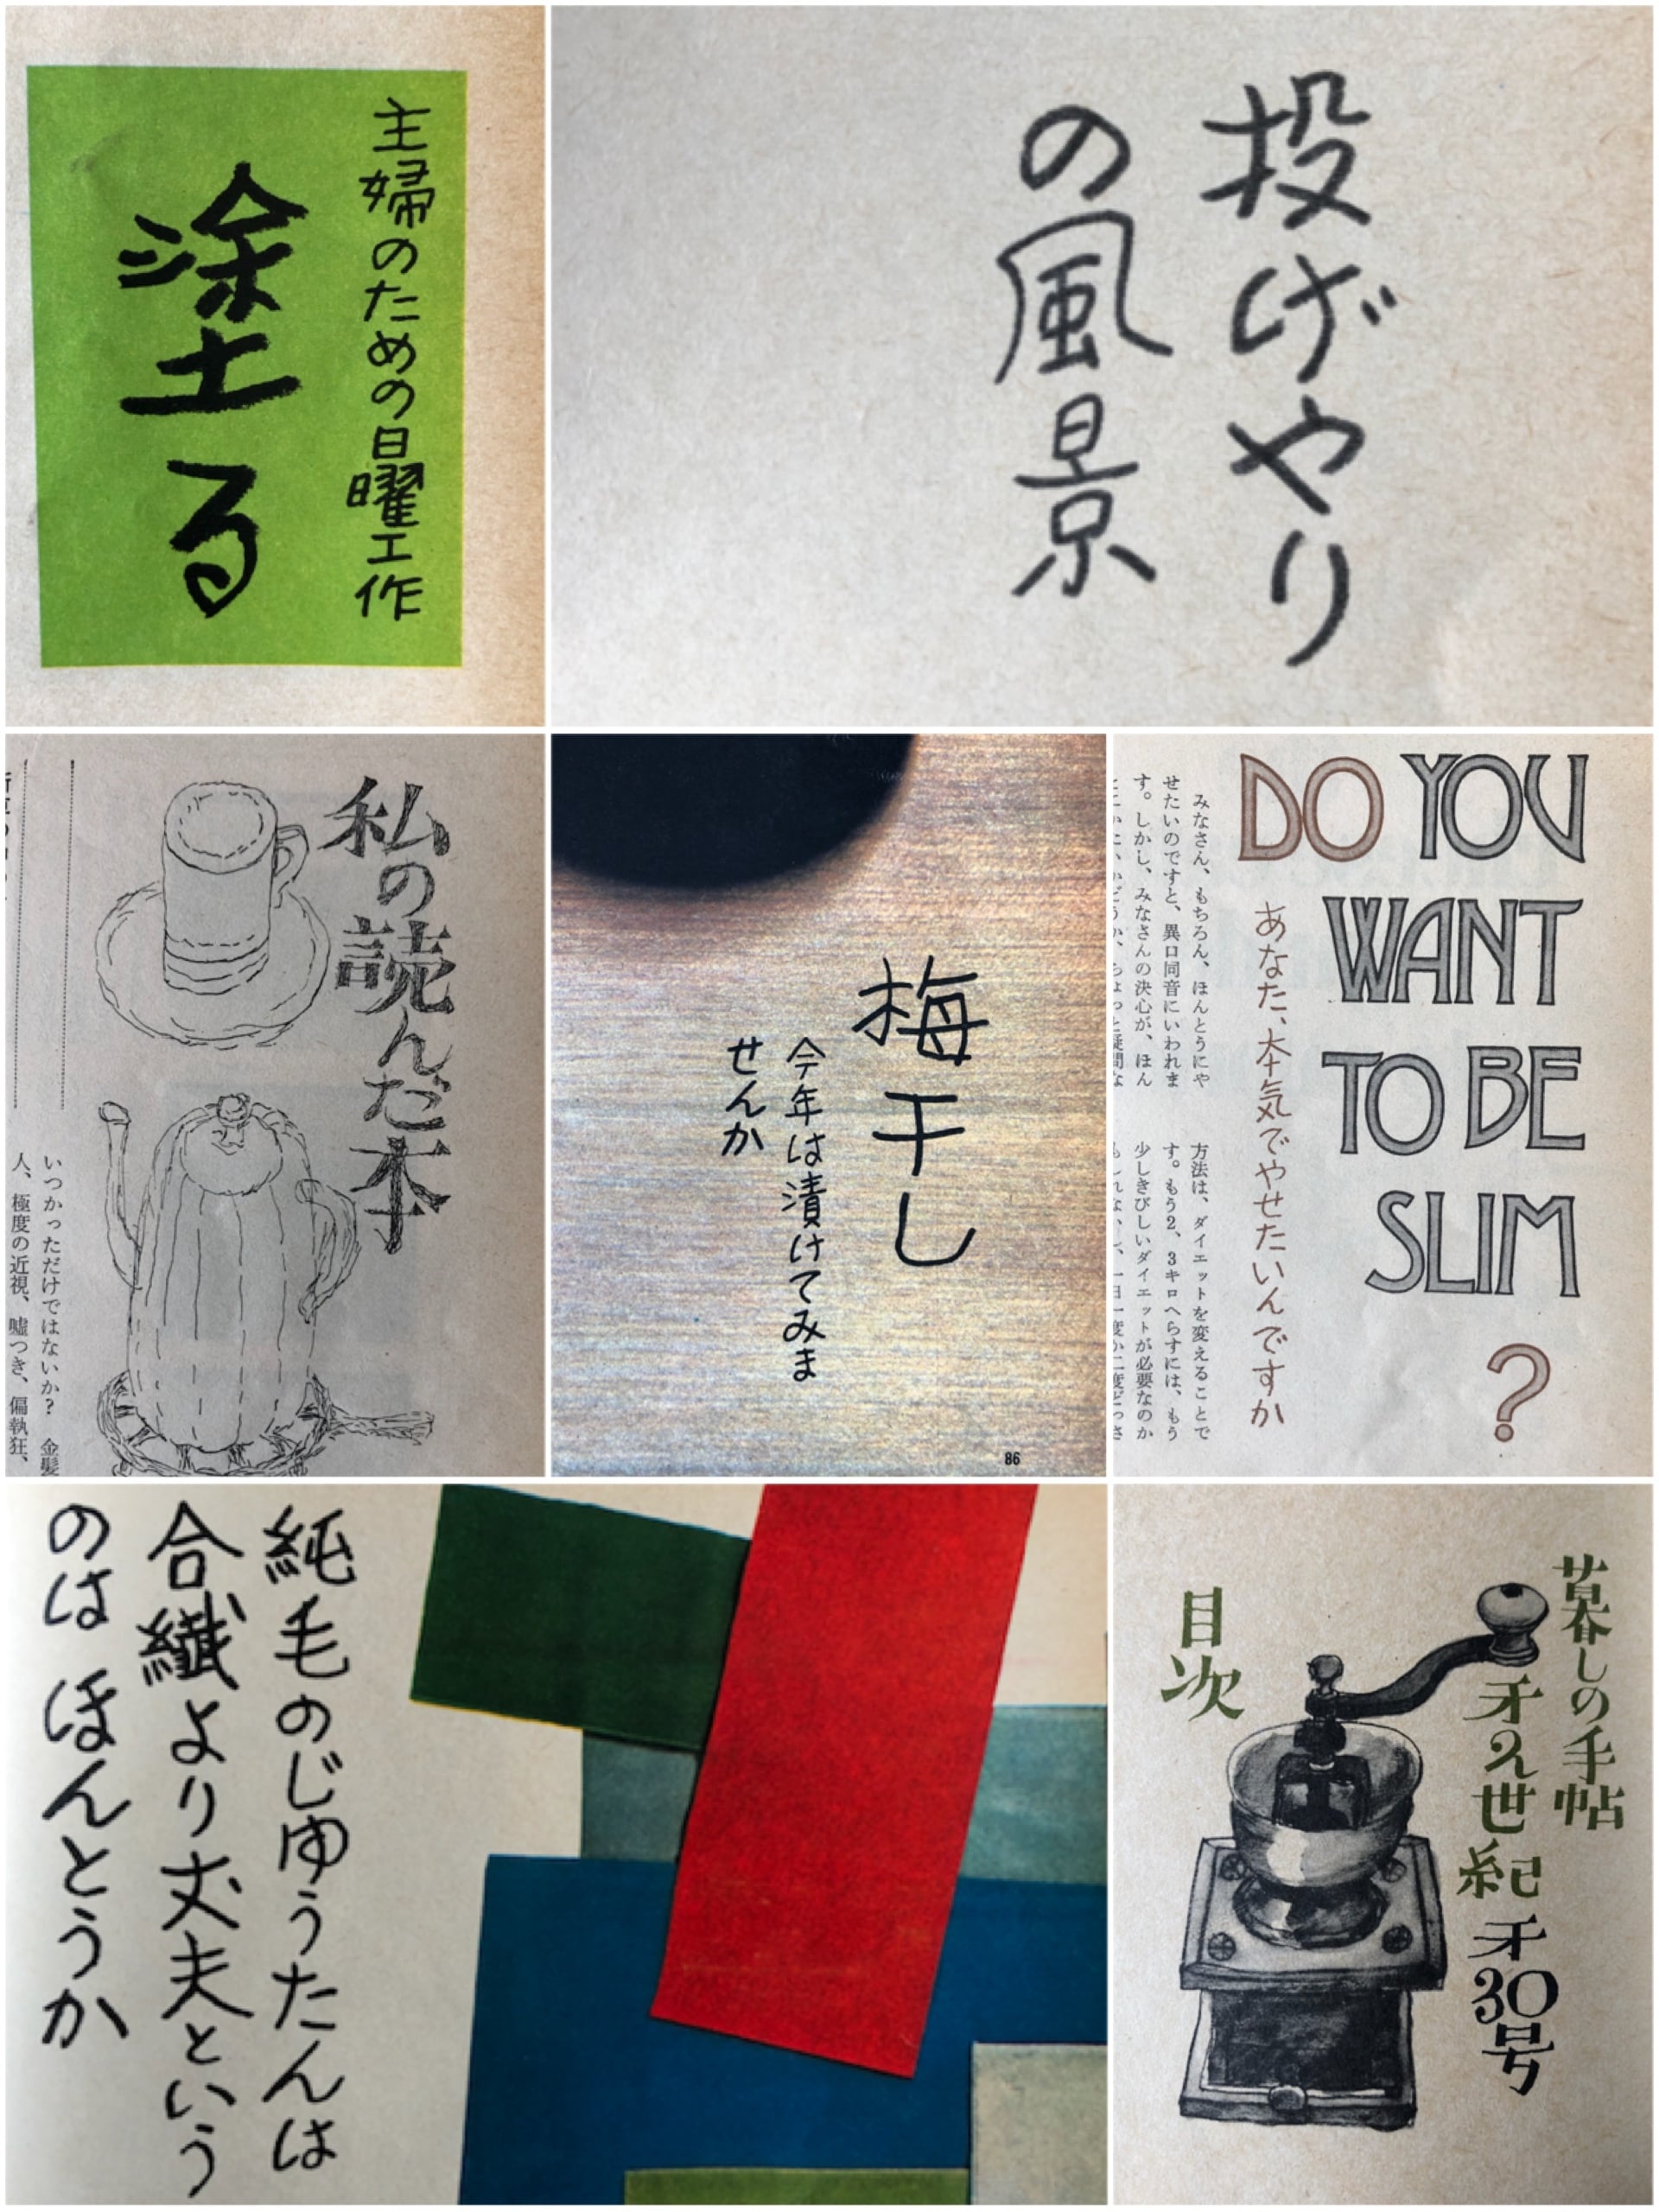 主婦のための日曜工作
塗る
投げやり
の風景
私の読んだ本
いつかっただけではないか？　金髪
人、極度の近視、嘘つき、偏執狂、
梅干し
今年は漬けてみま
せんか
86
DO YOU
WANT
TO BE
SLIM
?
あなた、本気でやせたいんですか
みなさん、もちろん、ほんとうにや
せたいのですと、異口同音にいわれま
す。しかし、みなさんの決心が、ほん
方法は、ダイエットを変えることで
す。もう2、3キロへらすには、もう
少しきびしいダイエットが必要なのか
純毛のじゅうたんは
合繊より丈夫という
のは ほんとうか
暮しの手帖
第2世紀 第30号
目次